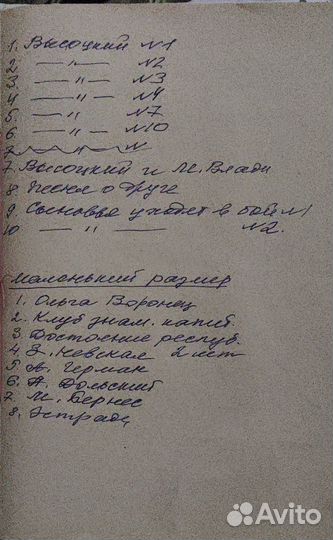 1. Высоцкий N1
2. —〃— N2
3. —〃— N3
4. —〃— N4
5. —〃— N7
6. —〃— N10
7. —〃— N
7. Высоцкий и М. Влади
8 Песня о друге
9 Сыновья уходят в бой N1
10 — 〃 — N2.
Маленький размер
1. Ольга Воронец
2. Клуб знам. капит.
3. Достояние респуб.
4. З. Невская 2 шт
5. А. Герман
6. А. Дольский
7. М. Бернес
8. Эстрада
Avito